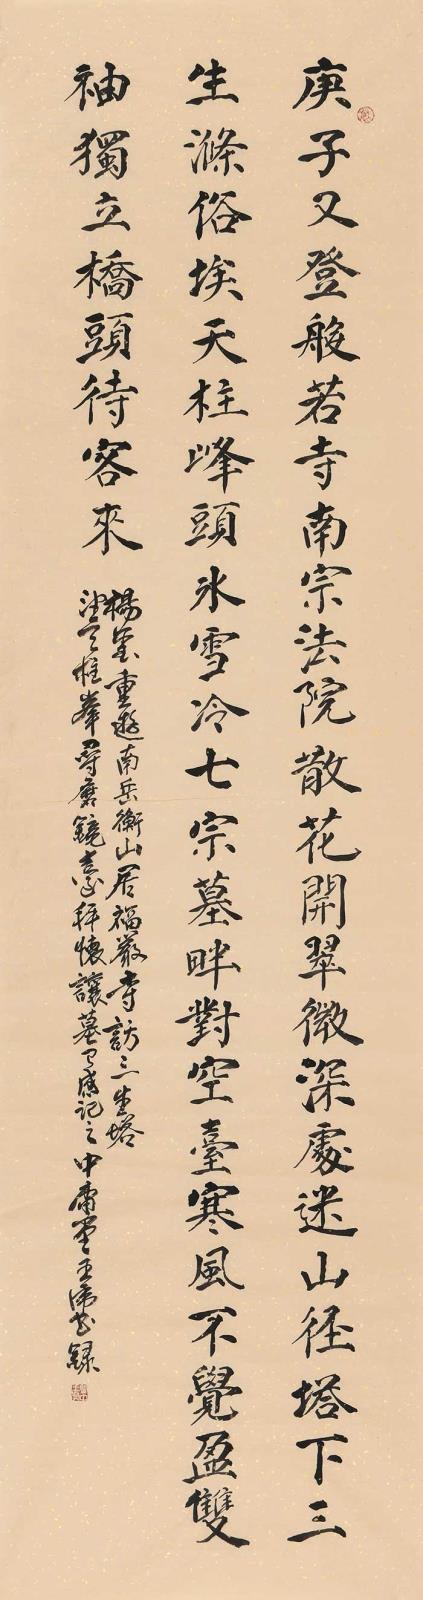 庚子又登般若寺南宗法院散花開翠微深處迷山径塔下三
生滌俗埃天柱峰頭氷雪冷七宗墓畔對空臺寒風不覺盈雙
袖獨立橋頭待客來
楊 重遊南岳衡山居福嚴寺訪三生塔
天柱峯尋磨鏡臺拜懷讓墓有感記之中庸堂 錄